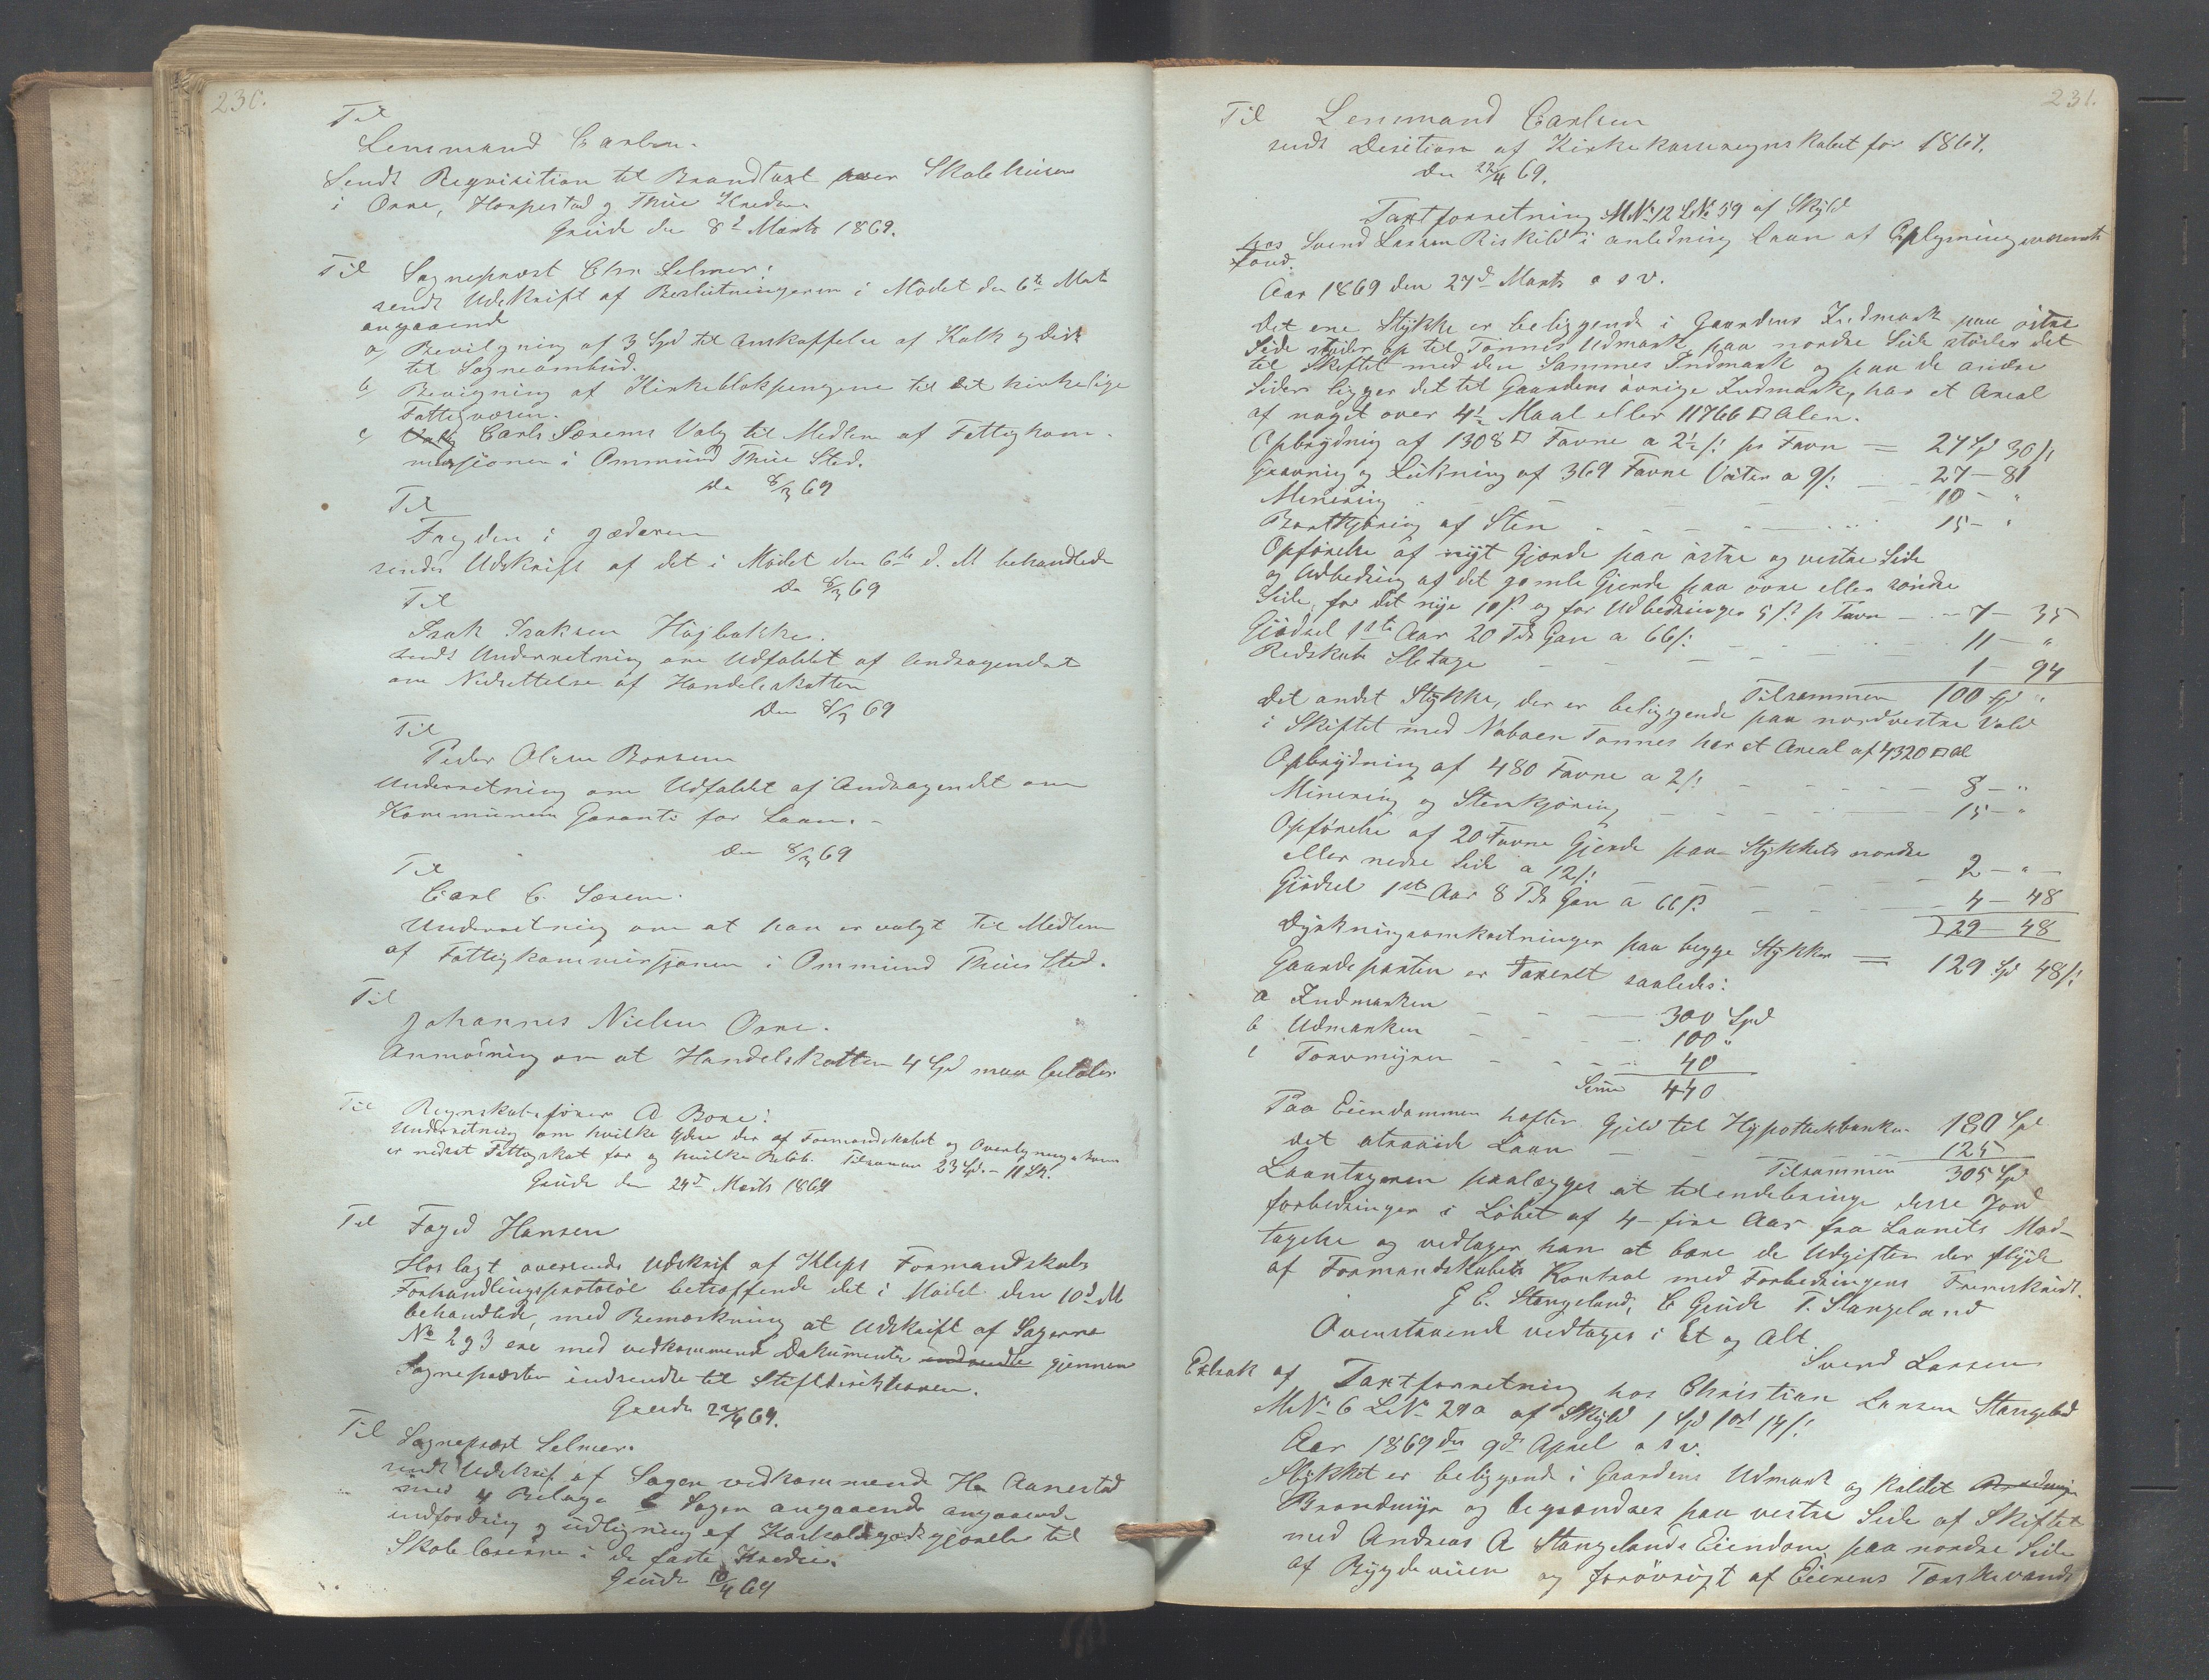 230.
Til
Lensmand Carlsen.
Sendt Reqvisition til Brandtaxt over Skolehusene
i Orre, Horpestad og Thue Kredse
Grude den 8d Marts 1869.
Til Sognepræst Chr Selmer:
sendt Udskrift af Beslutningerne i Mødet den 6te Marts
angaaende
a, Bevilgning af 3 Spd til Anskaffelse af Kalk og Disk
til Sogneombud.
b, Bevigning af Kirkeblokpengene til det kirkelige
Fattigvæsen.
c, Valg Carls Særems Valg til Medlem af Fattigkom-
missionen i Ommund Thue Sted.
Den 8/3 69
Til
Fogden i Jæderen
sendes Udskrift af det i Mødet den 6te d. M behandlede
Den 8/3 69
Til
Isak Isaksen Højbakke.
sendt Underretning om Udfaldet af Andragendet
om Nedsettelse af Handelsskatten
Den 8/3 69
Til
Peder Olsen Borsem
Underretning om Udfaldet af Andragendet om
Kommunens Garanti for Laan. -
Den 8/3 69
Til
Carl C. Særem.
Underretning om at han er valgt til Medlem
af Fattigkommissjonen i Ommund Thues Sted.
Til
Johannes Nielsen Orre.
Anmodning om at Handelskatten 4 Spd maa betales
Til Regnskabsfører A Bore:
Underretning om hvilke Ydere der af Formandskabet og Overligningskom
er nedsat Fattigskat for og hvilke Beløb. Tilsammen 23 Spd. - 11 Sk.
Grude den 24d Marts 1869
Til Foged Hansen
Hoslagt oversendes Udskrif af Kleps Formandskabs
Forhandlingsprotocol betræffende det i Mødet den 10d M
behandlede, med Bemærkning at Udskrift af Sagerne
No 2 g 3 ere med vedkommende Dokumenter indsendte gjennem
Sognepræsten indsendte til Stiftdirektionen.
Grude 22/4 69.
Til Sognepræst Selmer.
sendt Udskrif af Sagen vedkommende Ha Aanestad
med 4 Bilage & Sagen angaaende angaaende
indfordring og udligning af Kostholdsgodtgjørelse til
Skolelærerne i de faste Kredse.
Grude 10/4 69
231.
Til Lensmand Carlsen
sendt Desition af Kirkekasseregnskabet for 1867.
Den 22/4 69.
Taxtforretning MNo 12 LNo 59 af Skyld
hos Svend Larsen Riskild i anledning Laan af Oplysningsvæsenets
fond.
Aar 1869 den 27d Marts o s v.
Det ene Stykke er beliggende i Gaardens Indmark paa østre
Side støder op til Tønnes Udmark, paa nordre Side støder det
til Skiftet med den Sammes Indmark og paa de andre
Sider ligger det til Gaardens øvrige Indmark, har et Areal
af noget over 4½ Maal eller 11766 □ Alen.
Opbrydning af 1308 □ Favne a 2½ /: pr Favn = 27 Spd 30 /:
Gravning og Lukning af 369 Favne Veiter a 9 /: - - 27 - 81
Minering - - - 10 - "
Bortkjøring af Sten - - - 15 - "
Opførelse af nyt Gjærde paa østre og vestre Side
og Udbedring af det gamle Gjerde paa øvre eller søndre
Side, for det nye 10 ß og for Udbedringen 5 ß pr Favn - - 7 - 35
Gjødsel 1ste Aar 20 Tdr Gan a 66 /: - - 11 - "
Redskabs Slitage - - - 1 - 94
Tilsammen 100 Spd "
Det andet Stykke, der er beliggende paa nordvestre Vold
i Skiftet med Naboen Tønnes har et Areal af 4320 □ Al
Opbrydning af 480 Favne a 2 /: - - - 8 - "
Minering og Stenkjøring - - - 15 - "
Opførelse af 20 Favne Gjerde paa Stykkets nordre
eller nedre Side a 12 /: - - - 2 - " -
Gjødsel 1ste Aar 8 Tdr Gan a 66 ß. - - - 4 - 48
29 - 48
Dyrkningsomkostninger paa begge Stykker = 129 Spd 48 /:
Gaardsparten er Taxeret saaledes:
a Indmarken - - - 300 Spd
b Udmarken - - - 100 "
c Torvmyren - - - 40
Suma 440
Paa Eiendommen hæfter Gjeld til Hypothekbanken 180 Spd
Det attraaede Laan - - - 125
Tilsammen 305 Spd
Laantageren paalægges at tilendebringe disse Jord
forbedringer i Løbet af 4 - fire Aar fra Laanets Mod-
tagelse og vedtager han at bære de Udgifter der flyde
af Formandskabets Kontrol med Forbedringens Fremskridt.
G E. Stangeland, C Grude T. Stangeland
Ovenstaaende vedtages i Et og Alt
Svend Larsen
Extrak af Taxtforretning hos Christian Larsen Stangeland
MNo 6 LNo 29a af Skyld 1 Spd 1 ort 14 /:
Aar 1869 den 9de April o s v.
Stykket er beliggende i Gaardens Udmark og kaldet
Brandmyr og begrændses paa vestre Side af Skiftet
med Andreas A Stangelands Eiendom, paa nordre Side
af Bygdeveien og forøvrigt af Eierens